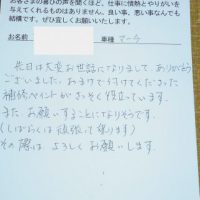 お客さまの喜びの声を聞くほど、仕事に情熱とやりがいを
与えてくれるものはありません。良い事、悪い事なんでも
結構です。ぜひ宜しくお願いいたします。
お名前
車種 マーチ
先日は大変お世話になりまして、ありがとう
ございました。おまけで付けてくださった
補修ペイントがさっそく役立っています。
また お願いすることになりそうです。
(しばらくは頑張って乗ります)
その際は よろしくお願いします。